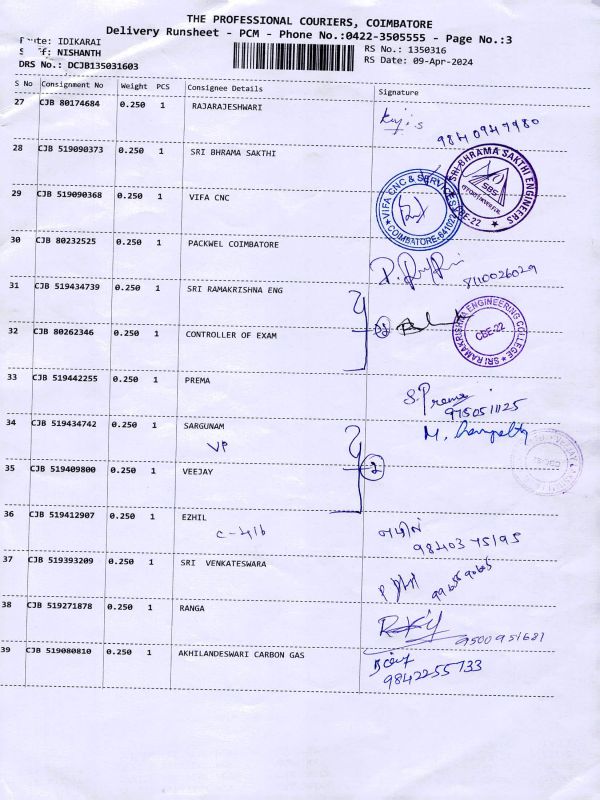 THE PROFESSIONAL COURIERS, COIMBATORE
Delivery Runsheet - PCM - Phone No.:0422-3505555 - Page No.:3
IDIKARAI
RS No.: 1350316
NISHANTH
RS Date: 09-Apr-2024
DRS No.: DCJB135031603
S No Consignment No Weight PCS Consignee Details Signature
27 CJB 80174684 0.250 1 RAJARAJESHWARI
9840947980
28 CJB 519090373 0.250 1 SRI BHRAMA SAKTHI
SRI BHRAMA SAKTHI ENGINEERS
SBS
CBE-22
29 CJB 519090368 0.250 1 VIFA CNC
VIFA CNC & SERVICES
COIMBATORE-641022
30 CJB 80232525 0.250 1 PACKWEL COIMBATORE
8110026029
31 CJB 519434739 0.250 1 SRI RAMAKRISHNA ENG
2
SRI RAMAKRISHNA ENGINEERING COLLEGE
CBE-22
32 CJB 80262346 0.250 1 CONTROLLER OF EXAM
33 CJB 519442255 0.250 1 PREMA
S. Prema
9750511125
34 CJB 519434742 0.250 1 SARGUNAM
VP
2
35 CJB 519409800 0.250 1 VEEJAY
36 CJB 519412907 0.250 1 EZHIL
98403 75195
37 CJB 519393209 0.250 1 SRI VENKATESWARA
38 CJB 519271878 0.250 1 RANGA
9500951681
39 CJB 519080810 0.250 1 AKHILANDESWARI CARBON GAS
9842255733